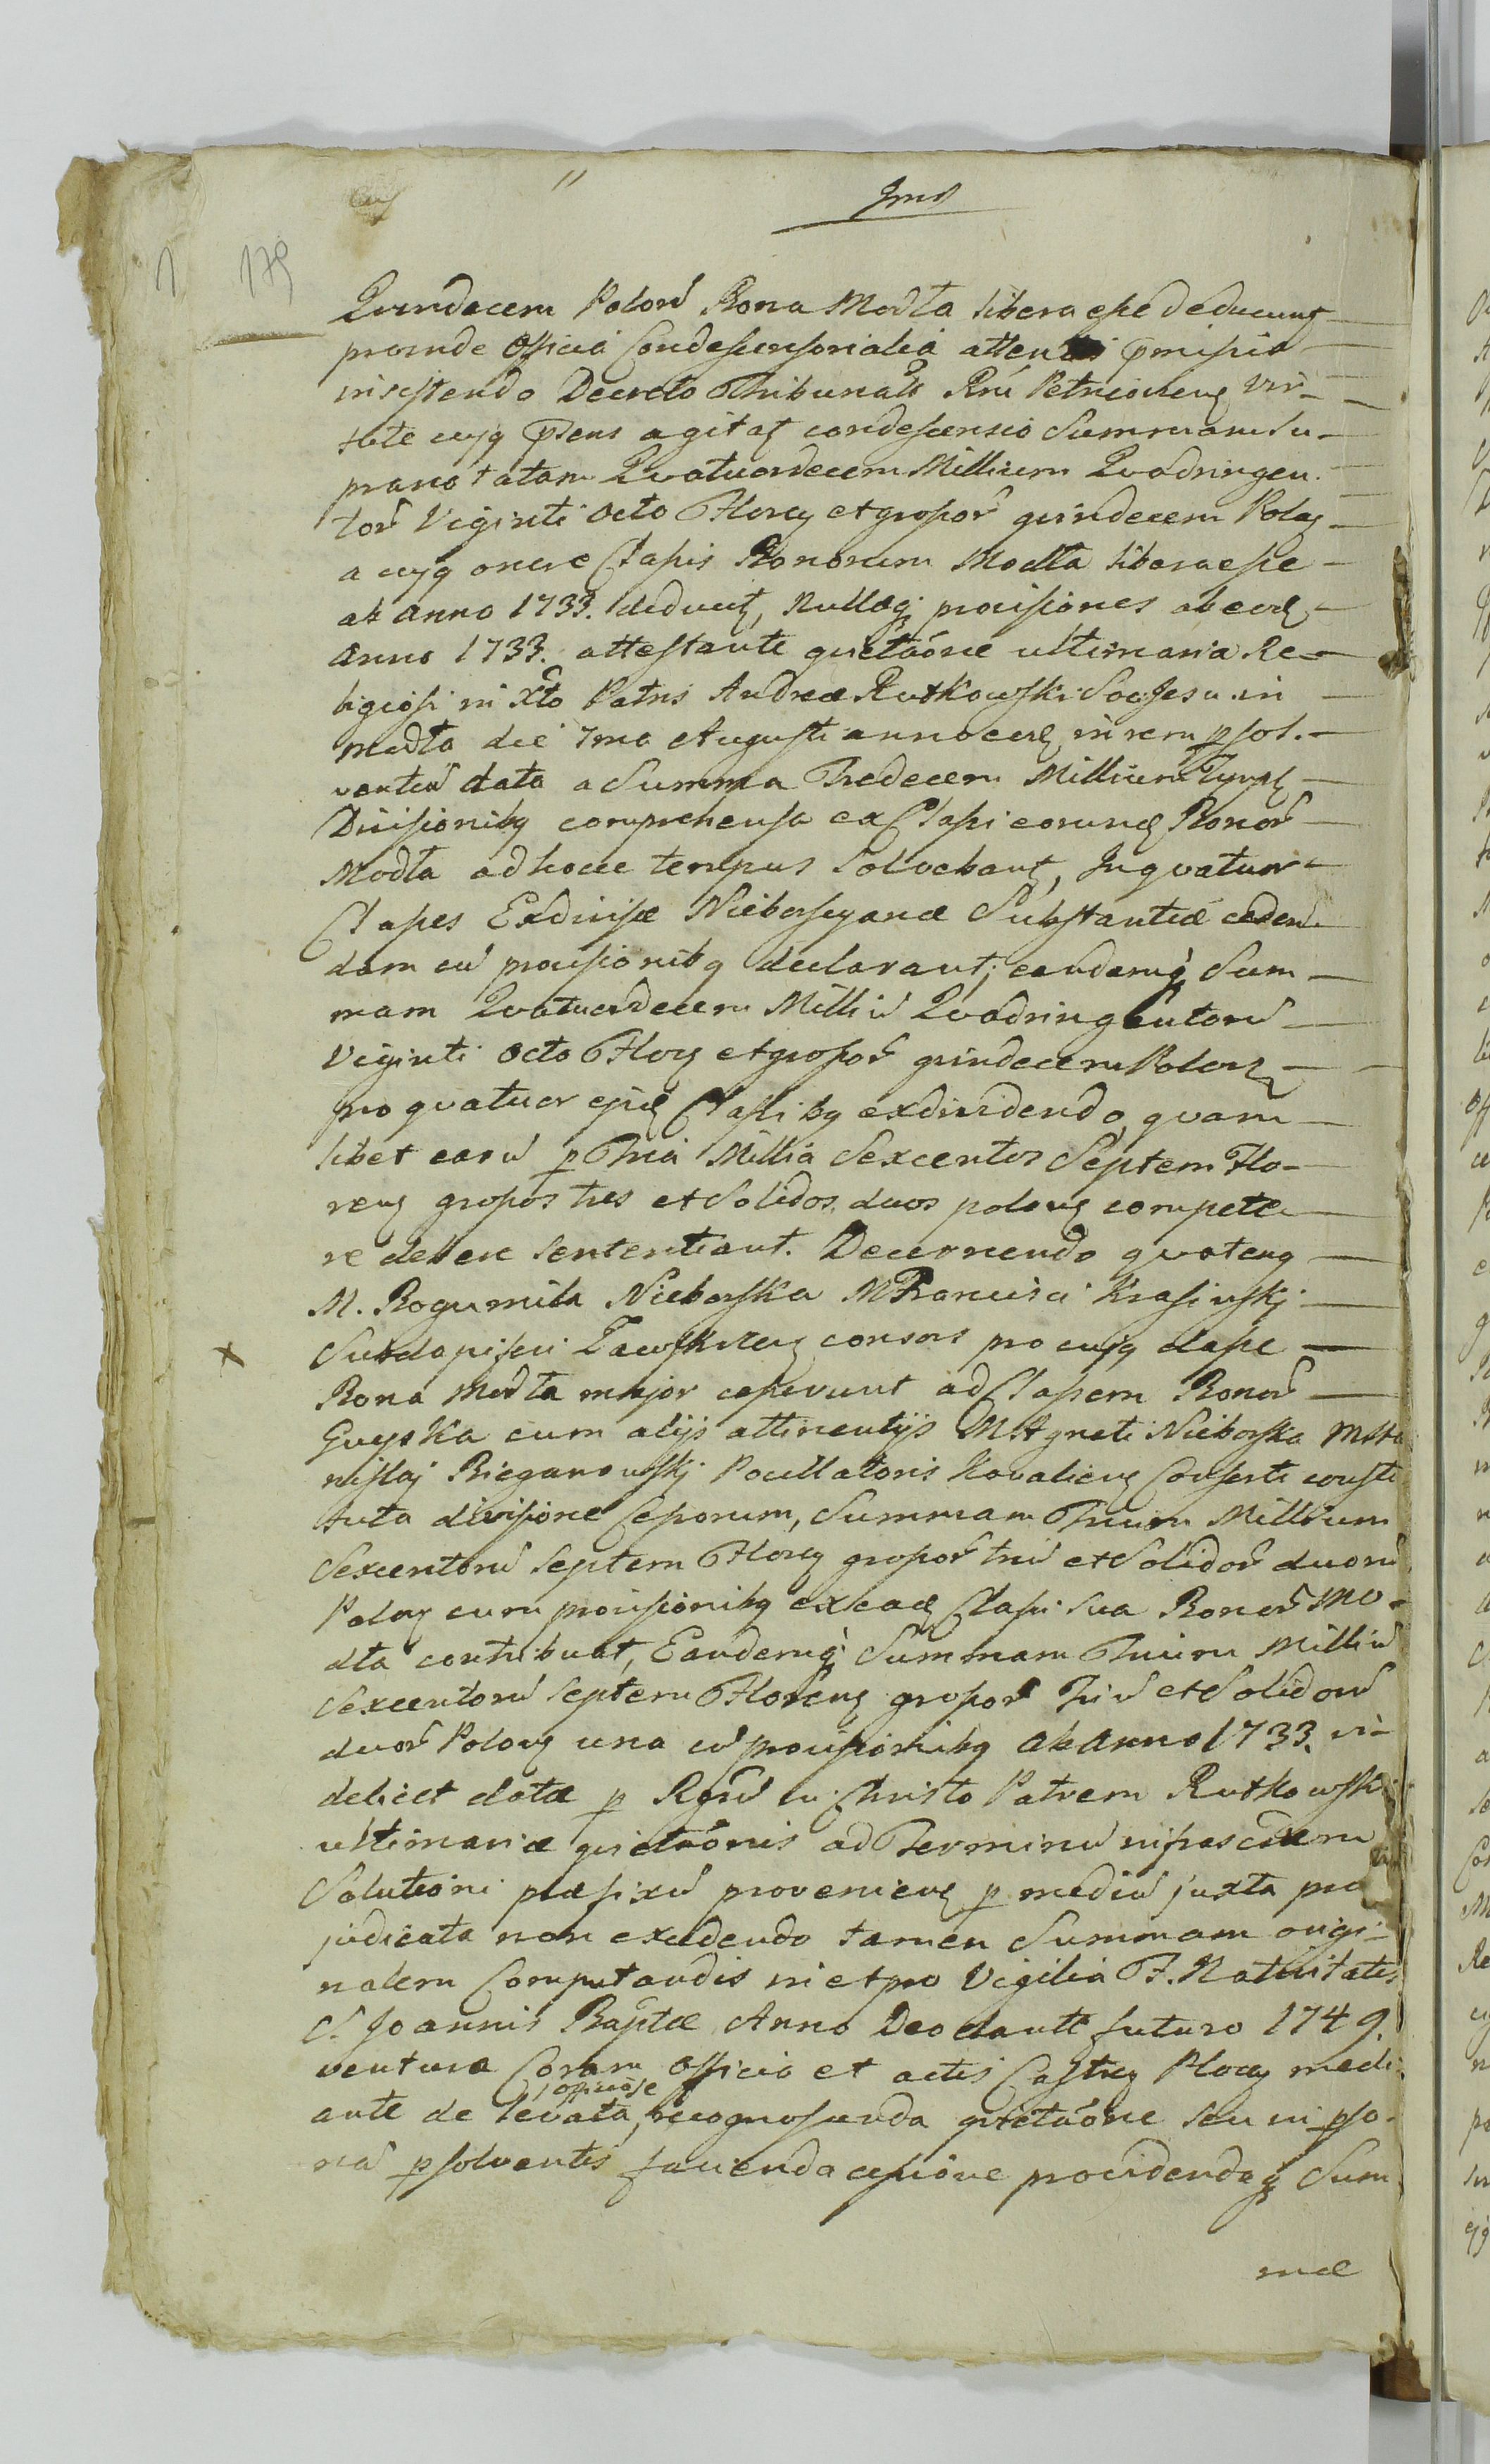 Jmd
1 179
Qvindecem Polon Bona Modła libera esse deducunt
proinde Officia Condescensorialia attentis pmissis
insistendo Decreto Tribunals Rni Petricovien vir-
tute cujq psens agitat condescensio Summam Su-
pranotatam Qvatuordecem Millium Qvadringen-
tor Viginti Octo Floren et grossor qvindecem Polon
a cujq onere Classis Bonorum Modła libera esse
ab Anno 1733. deducit, Nullasq provisiones ab eod
Anno 1733. attestante qvietaóne ultimaria Re-
ligiosi in Xto Patris Andreæ Rutkowski Soc Jesu in
Modła die 7ma Augusti anno eod in rem psol-
ventiu data a Summa Tredecem Millium Tymf
Divisionibq comprehensa ex Classi eorund Bonor
Modła ad hocce tempus Solvebant, In qvatuor
Classes Exdivisæ Nieborscyanæ Substantiæ ceden-
dam cu provisionibq declarant; eandemq Sum-
mam Qvatuordecem Milliu Qvadringentoru
Viginti Octo Flor et grossor qvindecem Polon
pro qvatuor ejusd Classibq exdividendo, qvam-
libet earu p Tria Millia Sexcentos Septem Flo-
renos grossos tres et Solidos duos polon compete-
re debere sententiant. Decernendo qvatenq
M. Bogumila Nieborska M Francisci Krasinskj
Subdapiferi consors pro cujq classe
Bona Modła major cesserunt ad Classem Bonor
cum alijs attinentijs M Agneti Nieborska M Sta
nislaj Bieganowskj Pocillatoris Consorti consti
tuta divisione Seporum, Summam Trium Millium
Sexcentoru Septem Floren grossor triu et Solidor duoru
Polon cum provisionibq ex ead Classi sua Bonor Mo-
dła contribuat, Eandemq Summam Trium Milliu
Sexcentoru Septem Floren grossor Triu et Solidoru
duor Polon una cu provisionibq ab Anno 1733. vi-
delicet datæ p Rgsu in Christo Patrem Rutkowski
ultimariæ qvietaónis ad Terminu infrascrtum
Solutioni præfixu provenien p mediu juxta præ
judicata non excedendo tamen Summam origi-
nalem Computandis in et pro Vigilia F. Nativitatis
S. Joannis Baptæ Anno Deo dante futuro 1749.
ventura Coram Officio et actis Castren Plocen medi-
officiose
ante de levata, recognoscenda qvietaóne seu in pso-
na psolventis facienda cessione providendaq Sum-
mæ